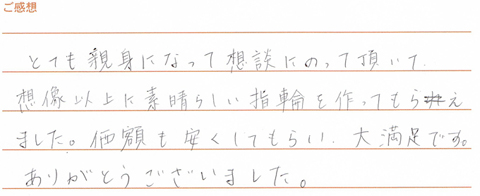 ご感想
とても親身になって想談にのって頂いて、
想像以上に素晴らしい指輪を作ってもらえ
ました。価額も安くしてもらい、大満足です。
ありがとうございました。